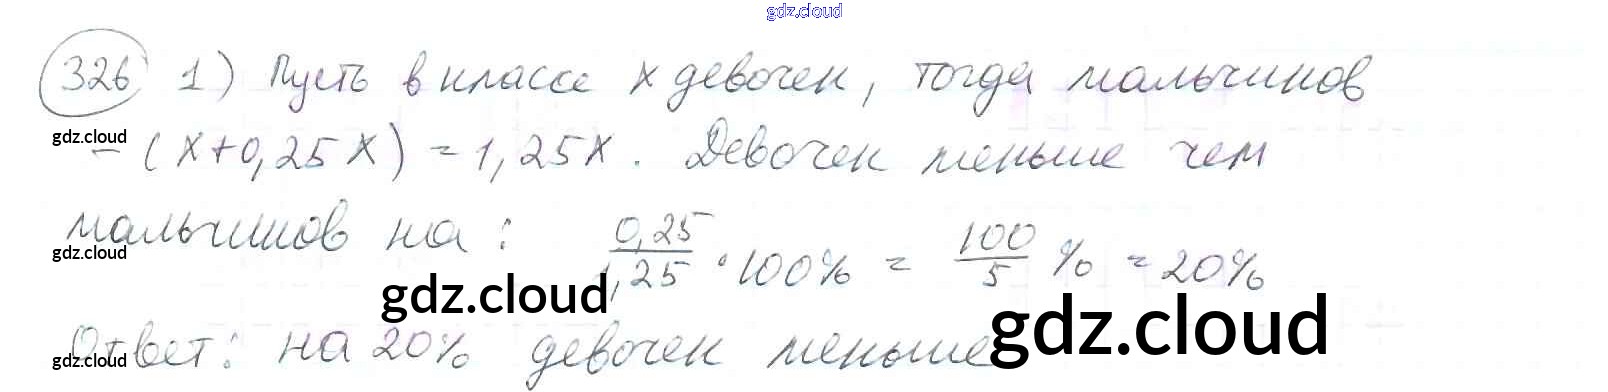 gdz.cloud
326 1) Пусть в классе x девочек, тогда мальчиков
gdz.cloud
– (x+0,25x) = 1,25x. Девочек меньше чем
мальчиков на: 0,25/1,25 · 100% = 100/5 % = 20%
gdz.cloud
gdz.cloud
Ответ: на 20% девочек меньше
gdz.cloud
gdz.cloud